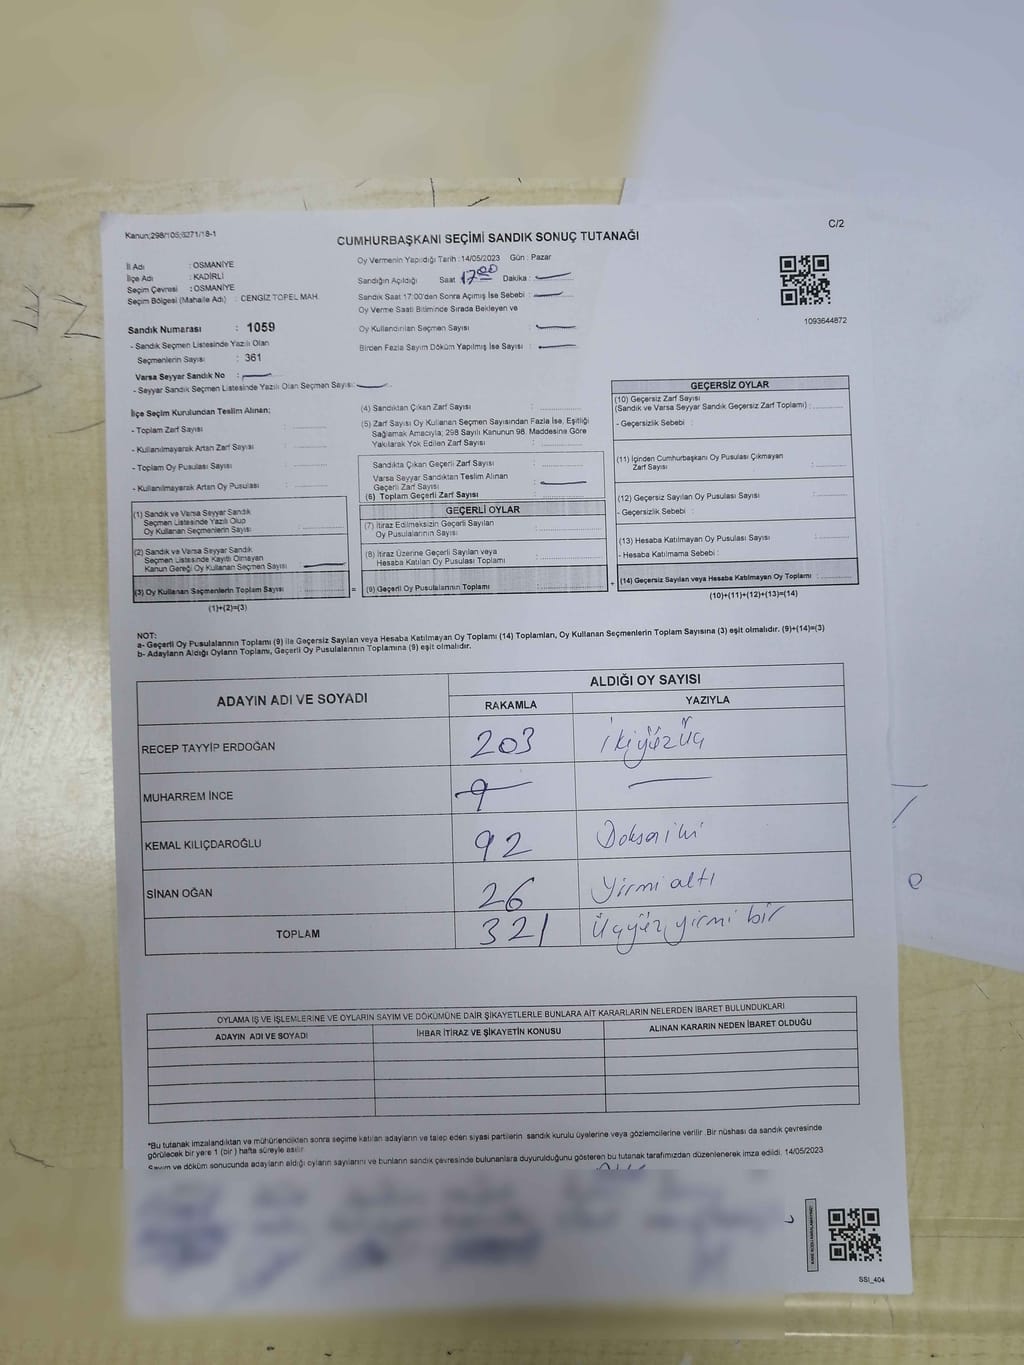 Kanun;298/105;6271/18-1
C/2
CUMHURBAŞKANI SEÇİMİ SANDIK SONUÇ TUTANAĞI
İl Adı : OSMANİYE
İlçe Adı : KADİRLİ
Seçim Çevresi : OSMANİYE
Seçim Bölgesi (Mahalle Adı) : CENGİZ TOPEL MAH.
Sandık Numarası : 1059
- Sandık Seçmen Listesinde Yazılı Olan
Seçmenlerin Sayısı : 361
Varsa Seyyar Sandık No :
- Seyyar Sandık Seçmen Listesinde Yazılı Olan Seçmen Sayısı:
Oy Vermenin Yapıldığı Tarih :14/05/2023 Gün : Pazar
Sandığın Açıldığı Saat 17:00 Dakika :
Sandık Saat 17:00'dan Sonra Açımış İse Sebebi :
Oy Verme Saati Bitiminde Sırada Bekleyen ve
Oy Kullandırılan Seçmen Sayısı :
Birden Fazla Sayım Döküm Yapılmış İse Sayısı :
1093644872
İlçe Seçim Kurulundan Teslim Alınan;
- Toplam Zarf Sayısı :
- Kullanılmayarak Artan Zarf Sayısı :
- Toplam Oy Pusulası Sayısı :
- Kullanılmayarak Artan Oy Pusulası :
(1) Sandık ve Varsa Seyyar Sandık
Seçmen Listesinde Yazılı Olup
Oy Kullanan Seçmenlerin Sayısı :
(2) Sandık ve Varsa Seyyar Sandık
Seçmen Listesinde Kayıtlı Olmayan
Kanun Gereği Oy Kullanan Seçmen Sayısı :
(3) Oy Kullanan Seçmenlerin Toplam Sayısı :
(1)+(2)=(3)
(4) Sandıktan Çıkan Zarf Sayısı :
(5) Zarf Sayısı Oy Kullanan Seçmen Sayısından Fazla İse, Eşitliği
Sağlamak Amacıyla; 298 Sayılı Kanunun 98. Maddesine Göre
Yakılarak Yok Edilen Zarf Sayısı :
Sandıkta Çıkan Geçerli Zarf Sayısı :
Varsa Seyyar Sandıktan Teslim Alınan
Geçerli Zarf Sayısı :
(6) Toplam Geçerli Zarf Sayısı :
GEÇERLİ OYLAR
(7) İtiraz Edilmeksizin Geçerli Sayılan
Oy Pusulalarının Sayısı :
(8) İtiraz Üzerine Geçerli Sayılan veya
Hesaba Katılan Oy Pusulası Toplamı :
= (9) Geçerli Oy Pusulalarının Toplamı :
GEÇERSİZ OYLAR
(10) Geçersiz Zarf Sayısı
(Sandık ve Varsa Seyyar Sandık Geçersiz Zarf Toplamı) :
- Geçersizlik Sebebi :
(11) İçinden Cumhurbaşkanı Oy Pusulası Çıkmayan
Zarf Sayısı :
(12) Geçersiz Sayılan Oy Pusulası Sayısı :
- Geçersizlik Sebebi :
(13) Hesaba Katılmayan Oy Pusulası Sayısı :
- Hesaba Katılmama Sebebi :
+ (14) Geçersiz Sayılan veya Hesaba Katılmayan Oy Toplamı :
(10)+(11)+(12)+(13)=(14)
NOT:
a- Geçerli Oy Pusulalarının Toplamı (9) ile Geçersiz Sayılan veya Hesaba Katılmayan Oy Toplamı (14) Toplamları, Oy Kullanan Seçmenlerin Toplam Sayısına (3) eşit olmalıdır. (9)+(14)=(3)
b- Adayların Aldığı Oyların Toplamı, Geçerli Oy Pusulalarının Toplamına (9) eşit olmalıdır.
ADAYIN ADI VE SOYADI
ALDIĞI OY SAYISI
RAKAMLA YAZIYLA
RECEP TAYYİP ERDOĞAN 203 İkiyüzüç
MUHARREM İNCE
KEMAL KILIÇDAROĞLU 92 Doksaniki
SİNAN OĞAN 26 Yirmi altı
TOPLAM 321 Üçyüz yirmi bir
OYLAMA İŞ VE İŞLEMLERİNE VE OYLARIN SAYIM VE DÖKÜMÜNE DAİR ŞİKAYETLERLE BUNLARA AİT KARARLARIN NELERDEN İBARET BULUNDUKLARI
ADAYIN ADI VE SOYADI İHBAR İTİRAZ VE ŞİKAYETİN KONUSU ALINAN KARARIN NEDEN İBARET OLDUĞU
*Bu tutanak imzalandıktan ve mühürlendikten sonra seçime katılan adayların ve talep eden siyasi partilerin sandık kurulu üyelerine veya gözlemcilerine verilir. Bir nüshası da sandık çevresinde
görülecek bir yere 1 (bir) hafta süreyle asılır.
Sayım ve döküm sonucunda adayların aldığı oyların sayılarını ve bunların sandık çevresinde bulunanlara duyurulduğunu gösteren bu tutanak tarafımızdan düzenlenerek imza edildi. 14/05/2023
SSI_404